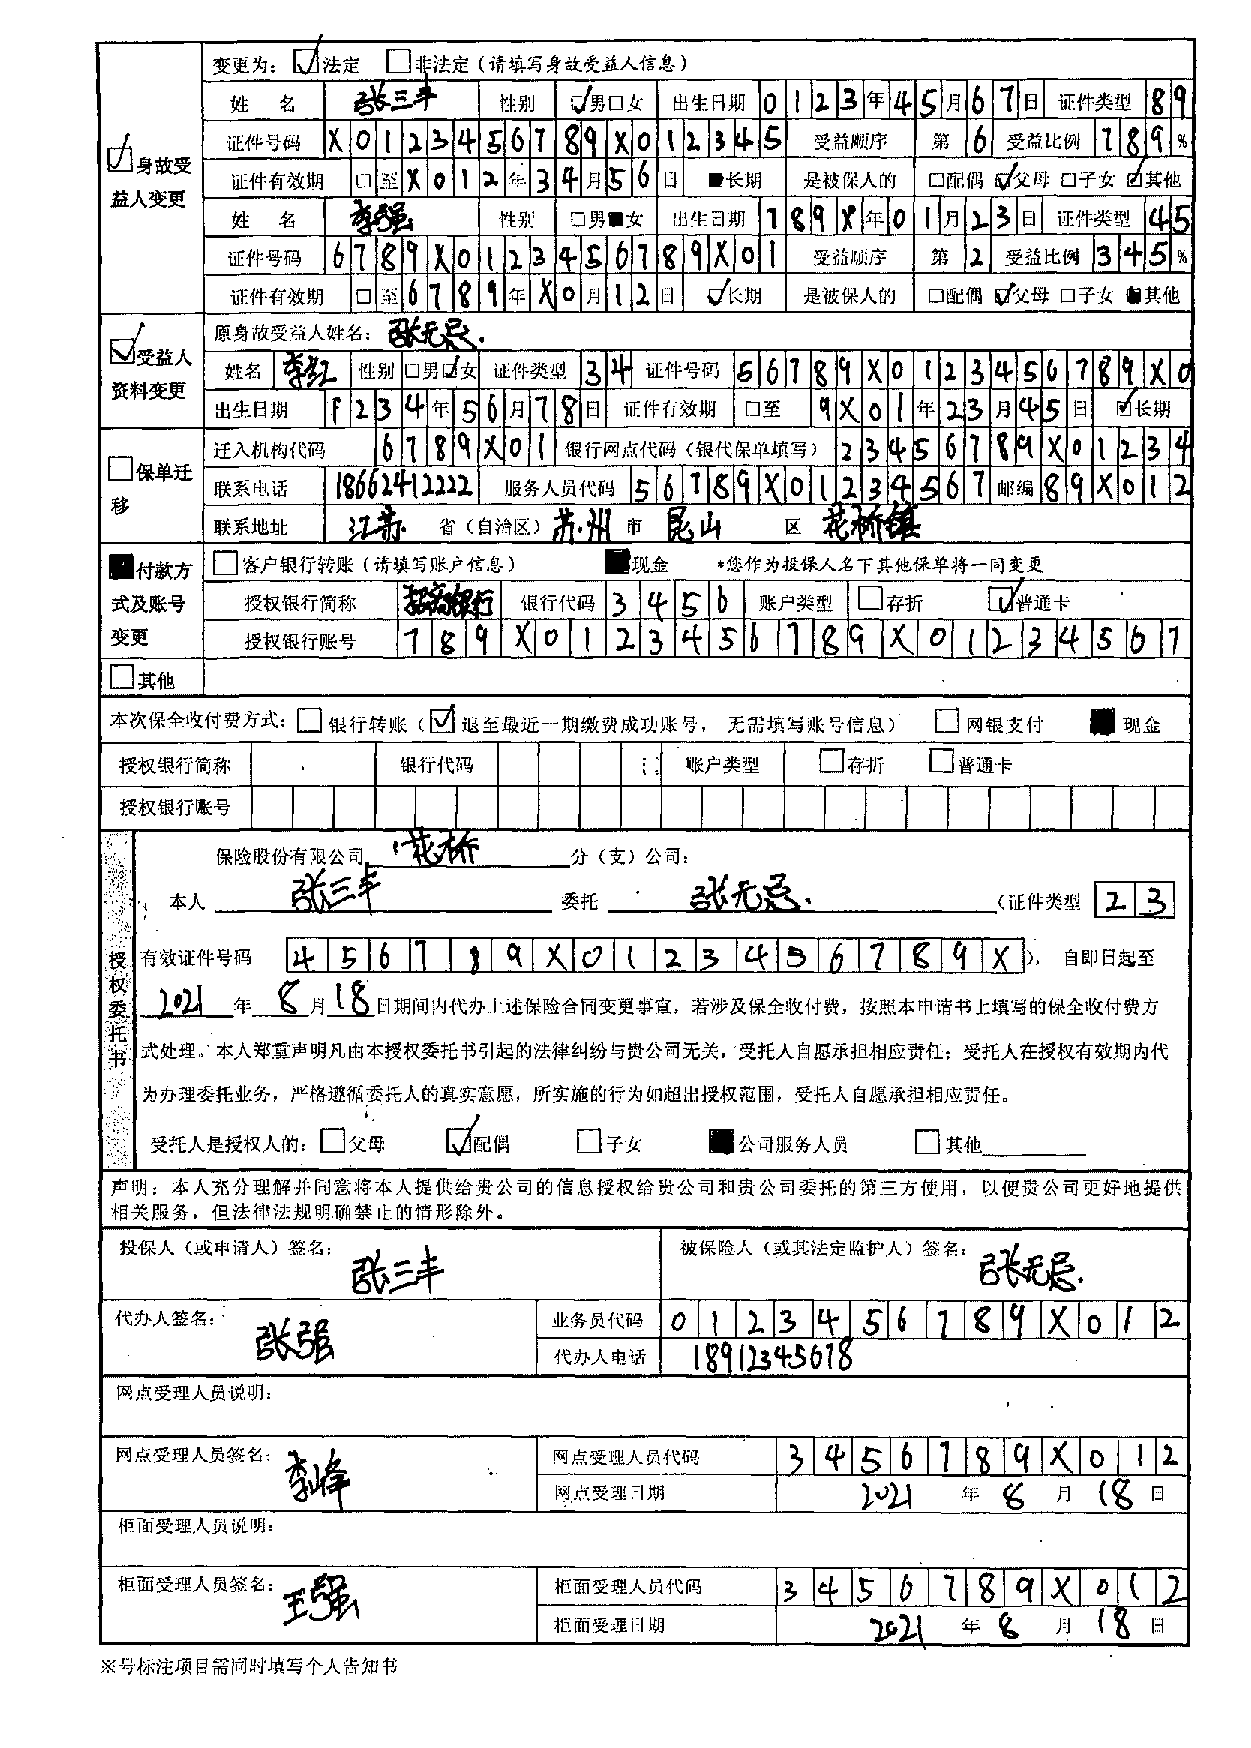 变更为： ☑法定 □非法定（请填写身故受益人信息）
☑身故受益人变更
姓 名 张三丰 性别 ☑男□女 出生日期 0123年45月67日 证件类型 89
证件号码 X0123456789X012345 受益顺序 第 6 受益比例 789%
证件有效期 □至X012年34月56日 ■长期 是被保人的 □配偶☑父母□子女☑其他
姓 名 李强 性别 □男■女 出生日期 789X年01月23日 证件类型 45
证件号码 6789X0123456789X01 受益顺序 第 2 受益比例 345%
证件有效期 □至6789年X0月12日 ☑长期 是被保人的 □配偶☑父母□子女■其他
☑受益人资料变更
原身故受益人姓名：张无忌.
姓名 李红 性别 □男☑女 证件类型 34 证件号码 56789X0123456789X0
出生日期 1234年56月78日 证件有效期 □至 9X01年23月45日 ☑长期
□保单迁移
迁入机构代码 6789X01 银行网点代码（银代保单填写） 23456789X01234
联系电话 18662412222 服务人员代码 56789X01234567 邮编 89X012
联系地址 江苏 省（自治区） 苏州 市 昆山 区 花桥镇
■付款方式及账号变更
□客户银行转账（请填写账户信息） ■现金 *您作为投保人名下其他保单将一同变更
授权银行简称 招商银行 银行代码 3456 账户类型 □存折 ☑普通卡
授权银行账号 789X0123456789X01234567
□其他
本次保全收付费方式：□银行转账（☑退至最近一期缴费成功账号，无需填写账号信息） □网银支付 ■现金
授权银行简称 银行代码 账户类型 □存折 □普通卡
授权银行账号
授权委托书
保险股份有限公司 花桥 分（支）公司：
本人 张三丰 委托 张无忌. （证件类型 23
有效证件号码 456789X0123456789X ）， 自即日起至
2021 年 8 月 18 日期间内代办上述保险合同变更事宜，若涉及保全收付费，按照本申请书上填写的保全收付费方
式处理。本人郑重声明凡由本授权委托书引起的法律纠纷与贵公司无关，受托人自愿承担相应责任；受托人在授权有效期内代
为办理委托业务，严格遵循委托人的真实意愿，所实施的行为如超出授权范围，受托人自愿承担相应责任。
受托人是授权人的：□父母 ☑配偶 □子女 ■公司服务人员 □其他
声明：本人充分理解并同意将本人提供给贵公司的信息授权给贵公司和贵公司委托的第三方使用，以便贵公司更好地提供
相关服务，但法律法规明确禁止的情形除外。
投保人（或申请人）签名： 张三丰 被保险人（或其法定监护人）签名： 张无忌.
代办人签名： 张强 业务员代码 0123456789X012
代办人电话 18912345678
网点受理人员说明：
网点受理人员签名： 李峰 网点受理人员代码 3456789X012
网点受理日期 2021 年 8 月 18 日
柜面受理人员说明：
柜面受理人员签名： 王强 柜面受理人员代码 3456789X012
柜面受理日期 2021 年 8 月 18 日
※号标注项目需同时填写个人告知书